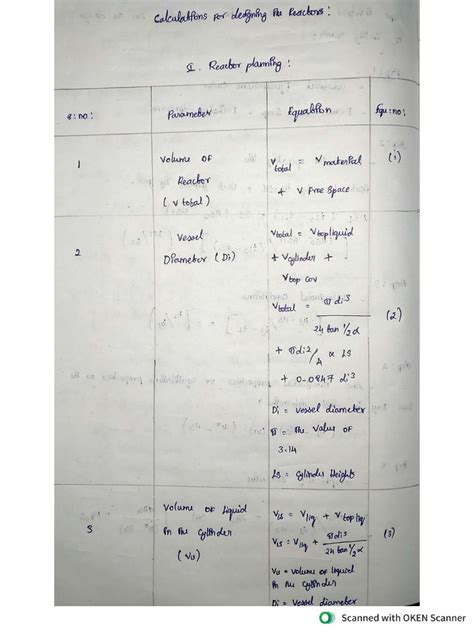 Calculations for designing the Reactors:
I. Reactor planning:
S:no: Parameter Equation Equ:no:
1 Volume of Reactor (V total) V total = V material + V Free Space (1)
2 Vessel Diameter (Di) Vtotal = Vtopliquid
+ Vcylinder +
Vtop cov
Vtotal = π di³ / 24 tan ½ α (2)
+ πdi² / 4 x LS
+ 0.0847 di³
Di = vessel diameter
π = the value of
3.14
LS = Cylinder Heights
3 Volume of Liquid in the Cylinder (Vls) Vls = Vliq + Vtopliq (3)
Vls = Vliq + πdi³ / 24 tan ½ α
Vls = volume of liquid
in the cylinder
Di = vessel diameter
Scanned with OKEN Scanner